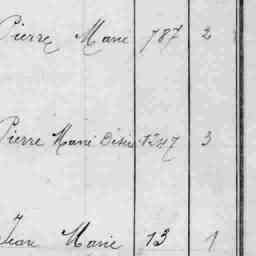 Pierre Marie 787 2
Pierre Marie Désiré 1247 3
Jean Marie 13 1